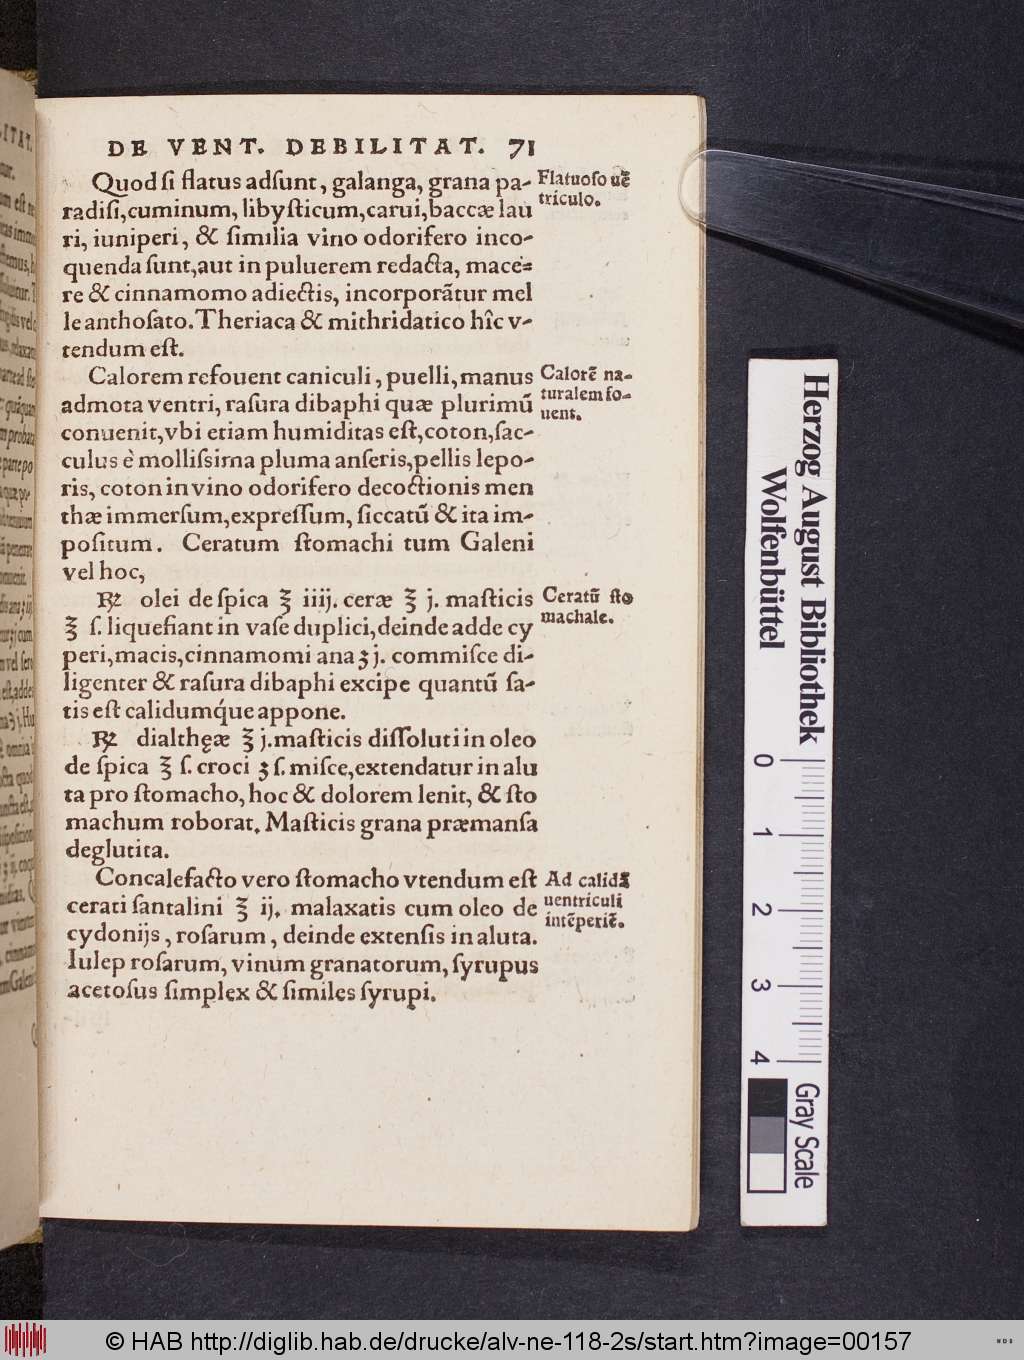 DE VENT. DEBILITAT. 71
Quod ſi flatus adſunt, galanga, grana pa-
radiſi, cuminum, libyſticum, carui, baccæ lau
ri, iuniperi, & ſimilia vino odorifero inco-
quenda ſunt, aut in puluerem redacta, mace-
re & cinnamomo adiectis, incorporãtur mel
le anthoſato. Theriaca & mithridatico hîc v-
tendum eſt.
Flatuoſo uẽ
triculo.
Calorem refouent caniculi, puelli, manus
admota ventri, raſura dibaphi quæ plurimũ
conuenit, vbi etiam humiditas eſt, coton, ſac-
culus è molliſsima pluma anſeris, pellis lepo-
ris, coton in vino odorifero decoctionis men
thæ immerſum, expreſſum, ſiccatũ & ita im-
poſitum. Ceratum ſtomachi tum Galeni
vel hoc,
Calorẽ na-
turalem fo-
uent.
℞ olei de ſpica ℥ iiij. ceræ ℥ j. maſticis
℥ ſ. liquefiant in vaſe duplici, deinde adde cy
peri, macis, cinnamomi ana ʒ j. commiſce di-
ligenter & raſura dibaphi excipe quantũ ſa-
tis eſt calidumq́ue appone.
Ceratũ ſto
machale.
℞ dialthęæ ℥ j. maſticis diſſoluti in oleo
de ſpica ℥ ſ. croci ʒ ſ. miſce, extendatur in alu
ta pro ſtomacho, hoc & dolorem lenit, & ſto
machum roborat. Maſticis grana præmanſa
deglutita.
Concalefacto vero ſtomacho vtendum eſt
cerati ſantalini ℥ ij. malaxatis cum oleo de
cydonijs, roſarum, deinde extenſis in aluta.
Iulep roſarum, vinum granatorum, ſyrupus
acetoſus ſimplex & ſimiles ſyrupi.
Ad calidã
uentriculi
intẽperiẽ.
Herzog August Bibliothek
Wolfenbüttel
0 1 2 3 4
Gray Scale
© HAB http://diglib.hab.de/drucke/alv-ne-118-2s/start.htm?image=00157